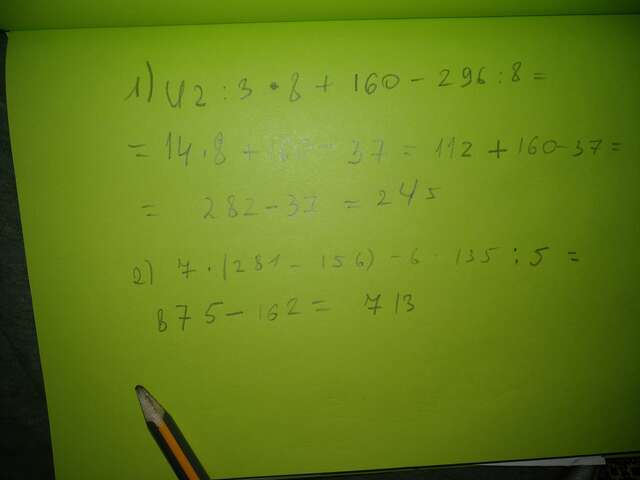 1) 42 : 3 • 8 + 160 - 296 : 8 =
= 14 . 8 + 160 - 37 = 112 + 160 - 37 =
= 282 - 37 = 245
2) 7 . (281 - 156) - 6 . 135 : 5 =
875 - 162 = 713